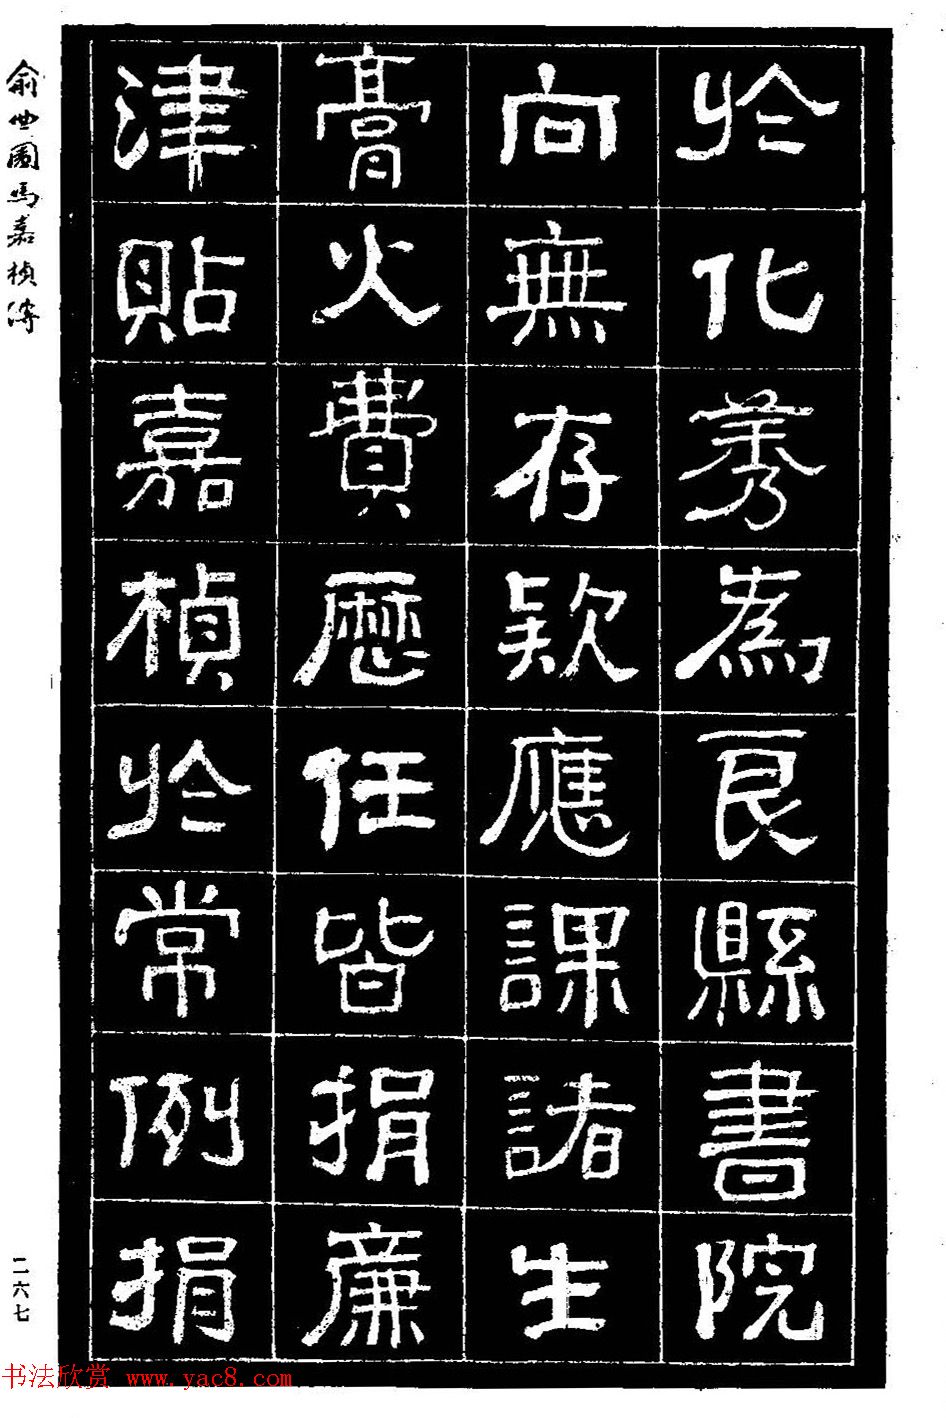 於化莠為良縣書院
向無存款應課諸生
膏火費歷任皆捐廉
津貼嘉楨於常例捐
俞世圃馬嘉楨傳
二六七
书法欣赏 www.yac8.com